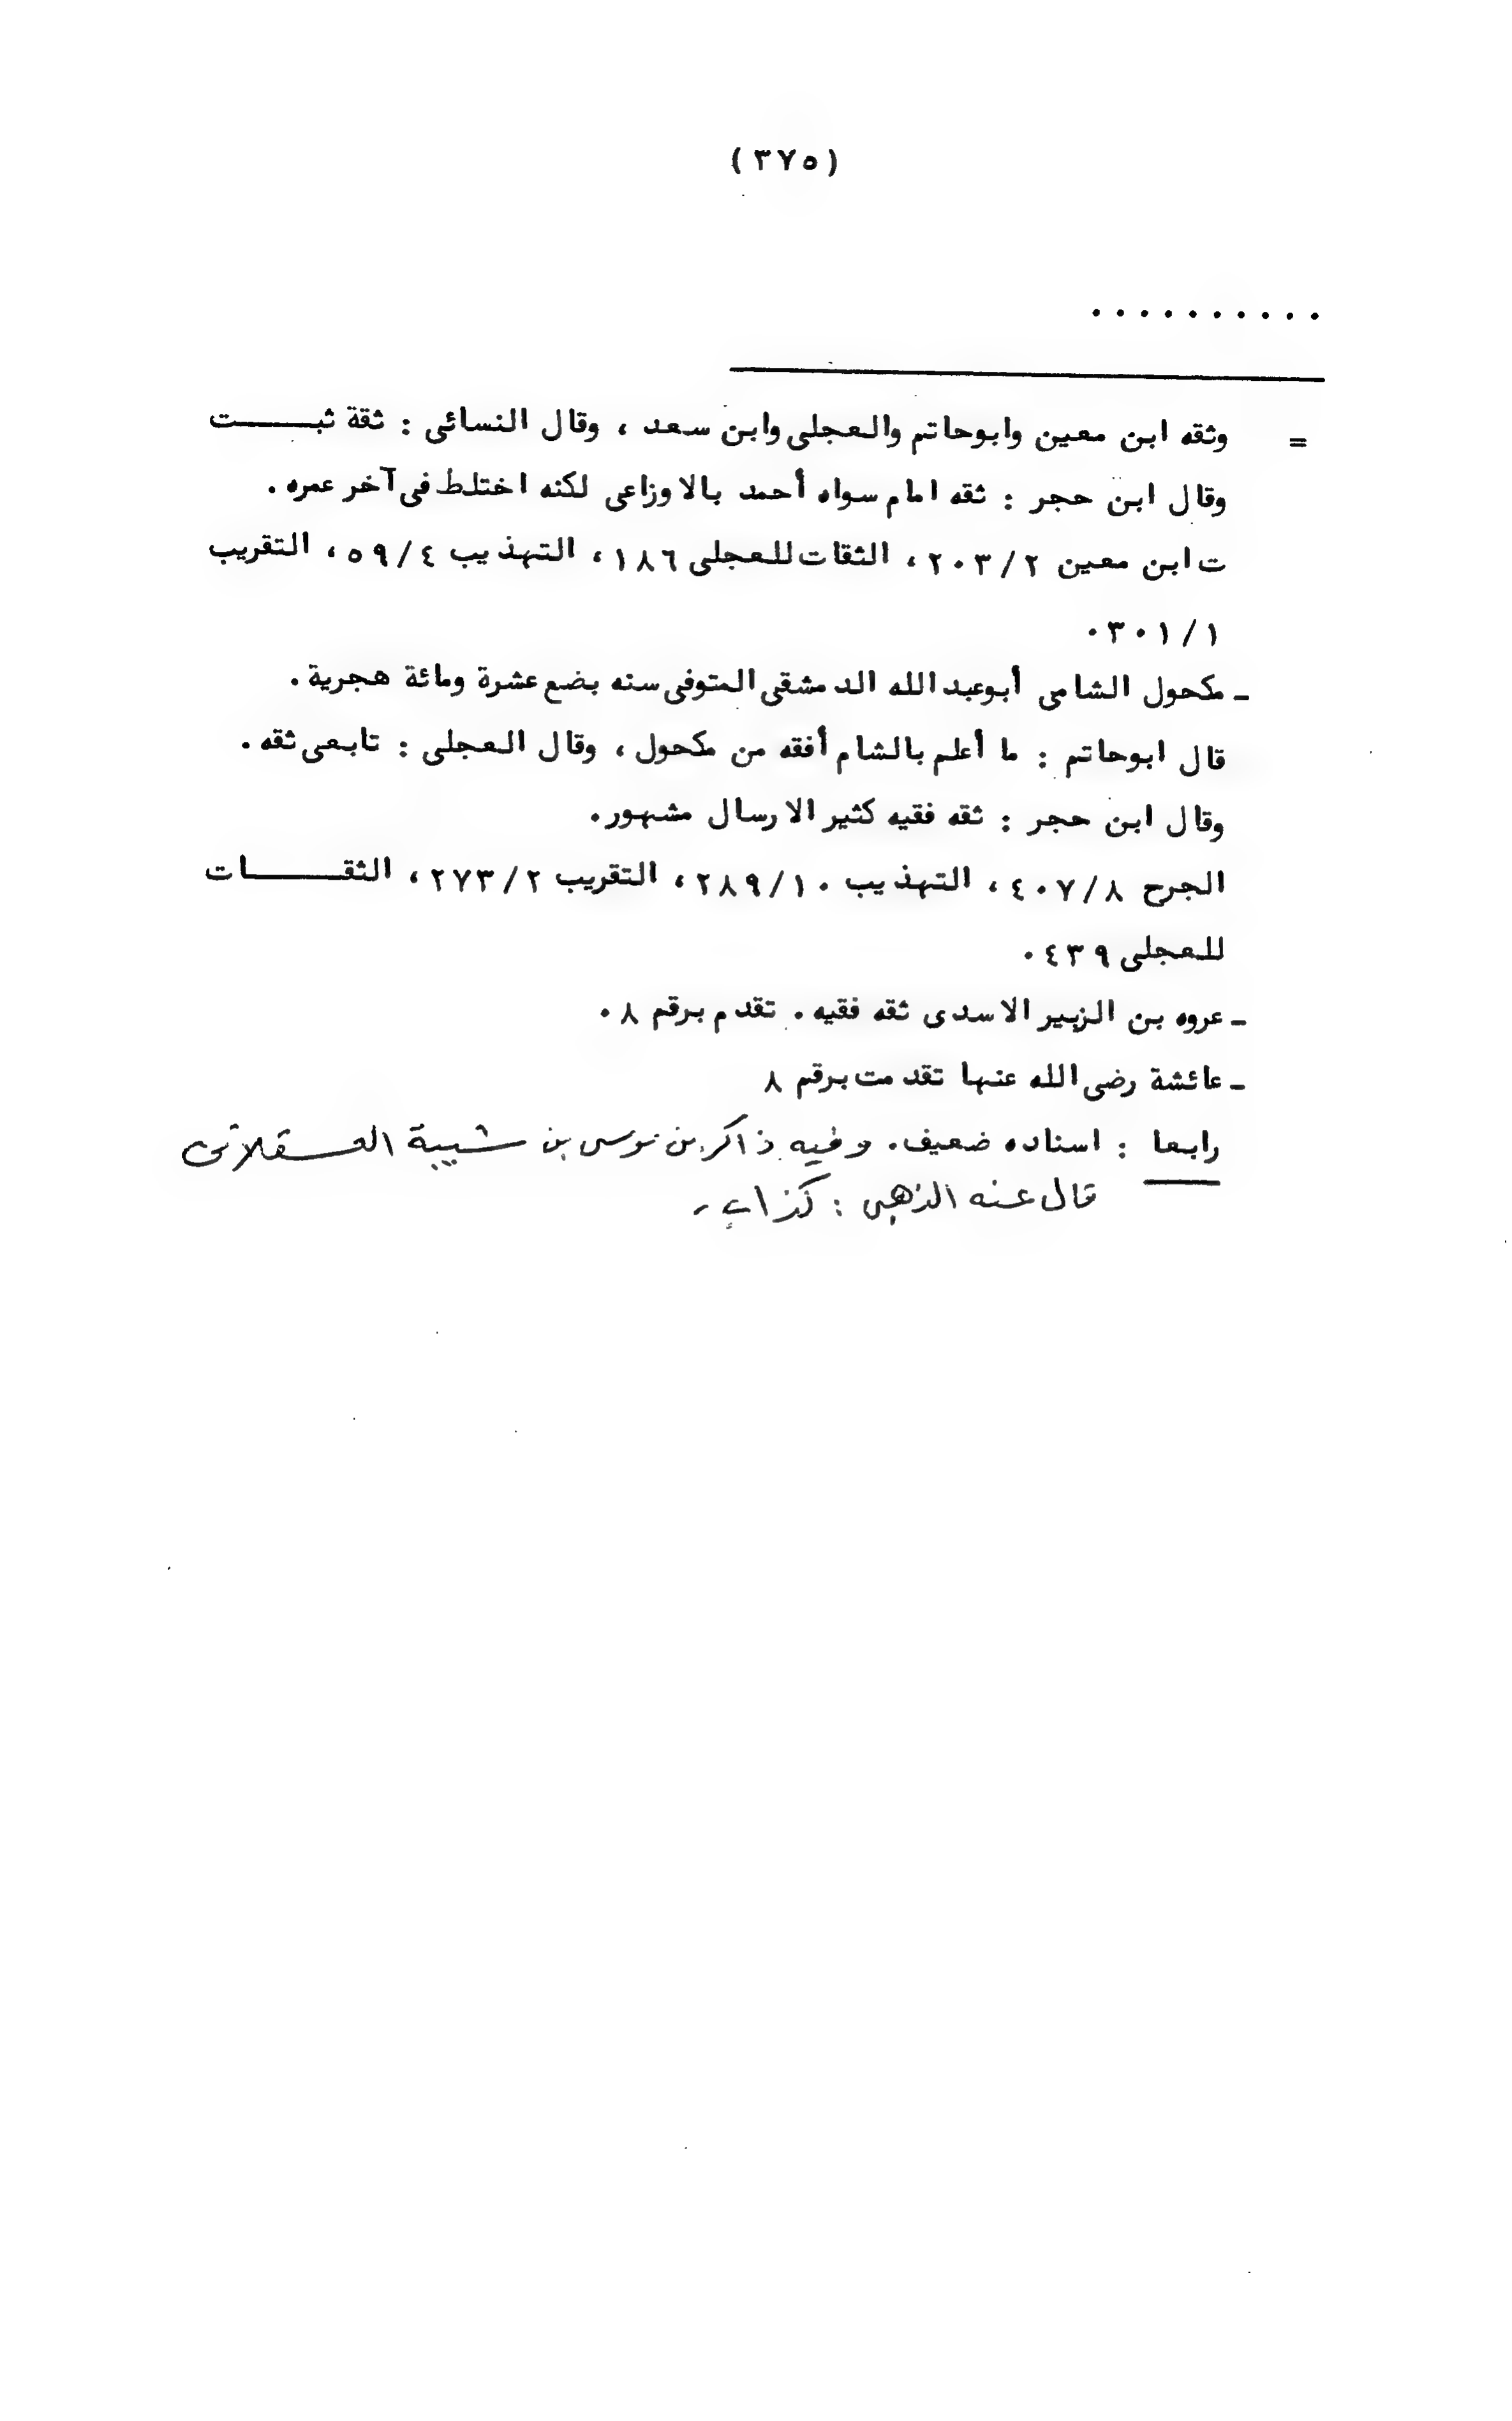 (٣٧٥)
..........
= وثقه ابن معين وابوحاتم والعجلى وابن سعد ، وقال النسائى : ثقة ثبـــــت
وقال ابن حجر : ثقه امام سواه أحمد بالاوزاعى لكنه اختلط فى آخر عمره .
ت ابن معين ٢٠٣/٢ ، الثقات للعجلى ١٨٦ ، التهذيب ٥٩/٤ ، التقريب
٣٠١/١ .
ـ مكحول الشامى أبوعبد الله الدمشقى المتوفى سنه بضع عشرة ومائة هجرية .
قال ابوحاتم : ما أعلم بالشام أفقه من مكحول ، وقال العجلى : تابعى ثقه .
وقال ابن حجر : ثقه فقيه كثير الارسال مشهور .
الجرح ٤٠٧/٨ ، التهذيب ٢٨٩/١٠ ، التقريب ٢٧٣/٢ ، الثقـــــات
للعجلى ٤٣٩ .
ـ عروه بن الزبير الاسدى ثقه فقيه . تقدم برقم ٨ .
ـ عائشة رضى الله عنها تقدمت برقم ٨
رابعا : اسناده ضعيف . وفيه ذاكر بن موسى بن شيبة العسقلانى
قال عنه الذهبى : كذاب .